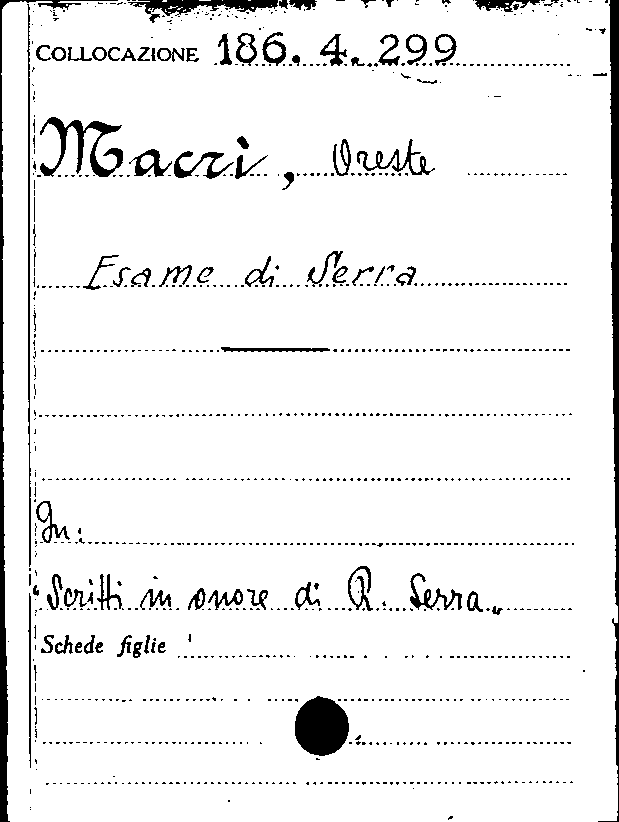 COLLOCAZIONE 186. 4. 299
Macrì, Oreste
Esame di Serra
In:
"Scritti in onore di R. Serra"
Schede figlie